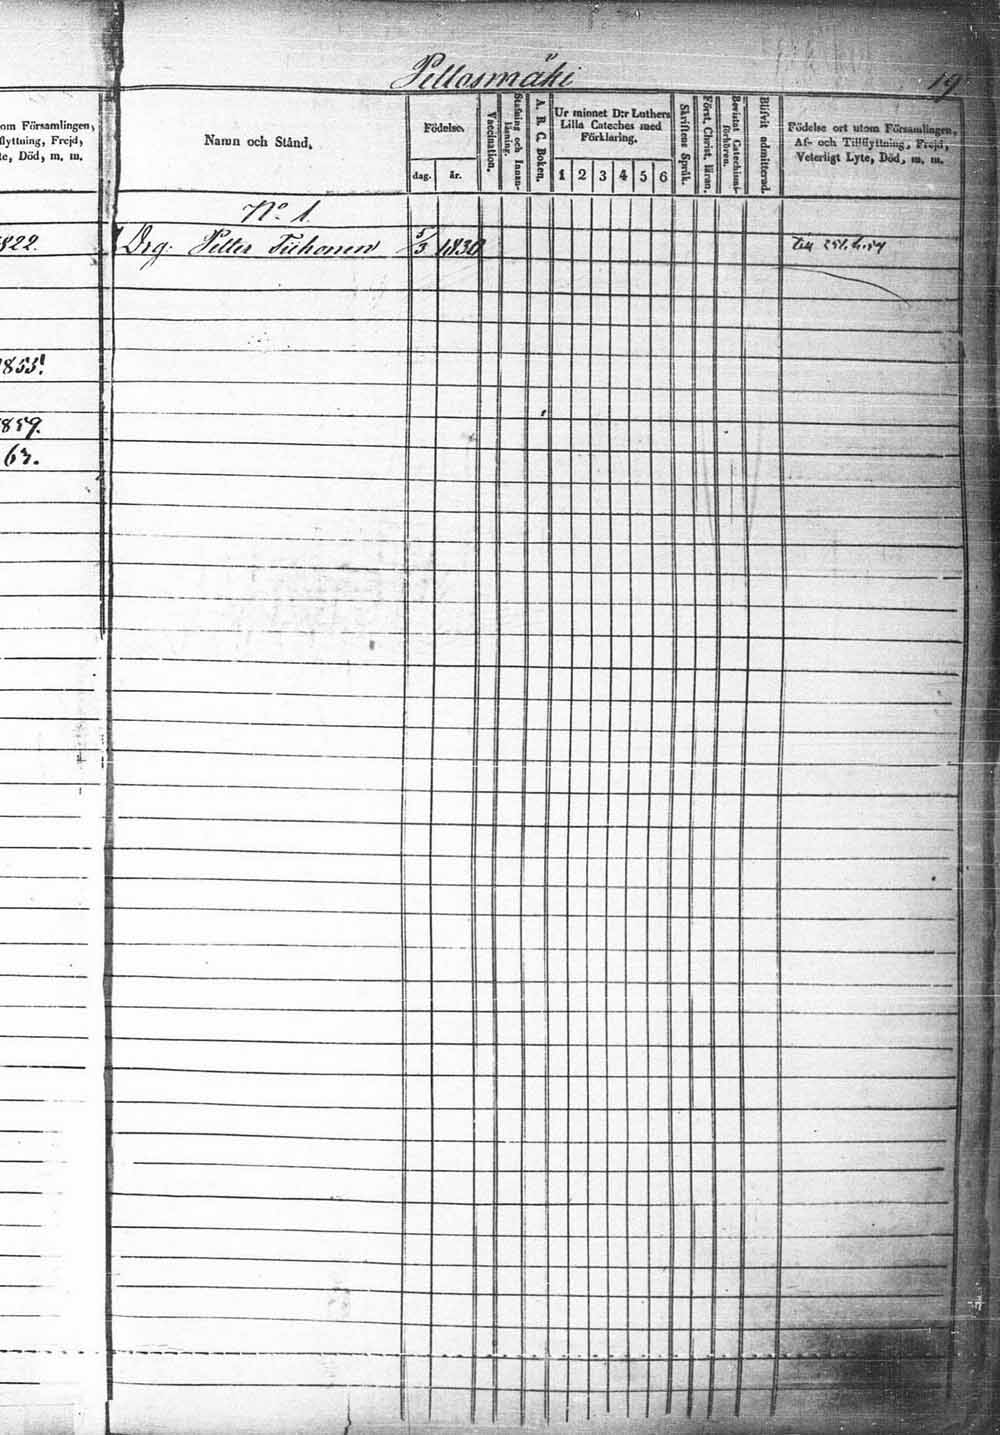 Pellosmäki 19
om Församlingen,
flyttning, Frejd,
te, Död, m. m.
Namn och Stånd.
Födelse.
dag. år.
Vaccination.
Stafning och Innan-
läsning.
A. B. C. Boken.
Ur minnet D:r Luthers
Lilla Cateches med
Förklaring.
1 2 3 4 5 6
Skriftens Språk.
Först. Christ. läran.
Bevistat Catechismi-
förhören.
Blifvit admitterad.
Födelse ort utom Församlingen,
Af- och Tillflyttning, Frejd,
Veterligt Lyte, Död, m. m.
No 1.
822. Drg. Petter Tiihonen 5/3 1830 till
855.
859.
63.